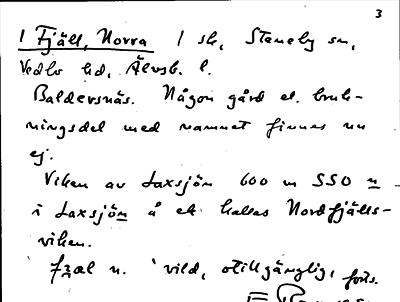 3
1 Fjäll, Norra 1 sk, Steneby sn,
Vedbo hd, Älvsb. l.
Baldersnäs. Någon gård el. bruk-
ningsdel med namnet finnes nu
ej.
Viken av Laxsjön 600 m SSO n
i Laxsjön å ek kallas Nordfjälls-
viken.
Fzæl n. 'vild, otillgänglig,